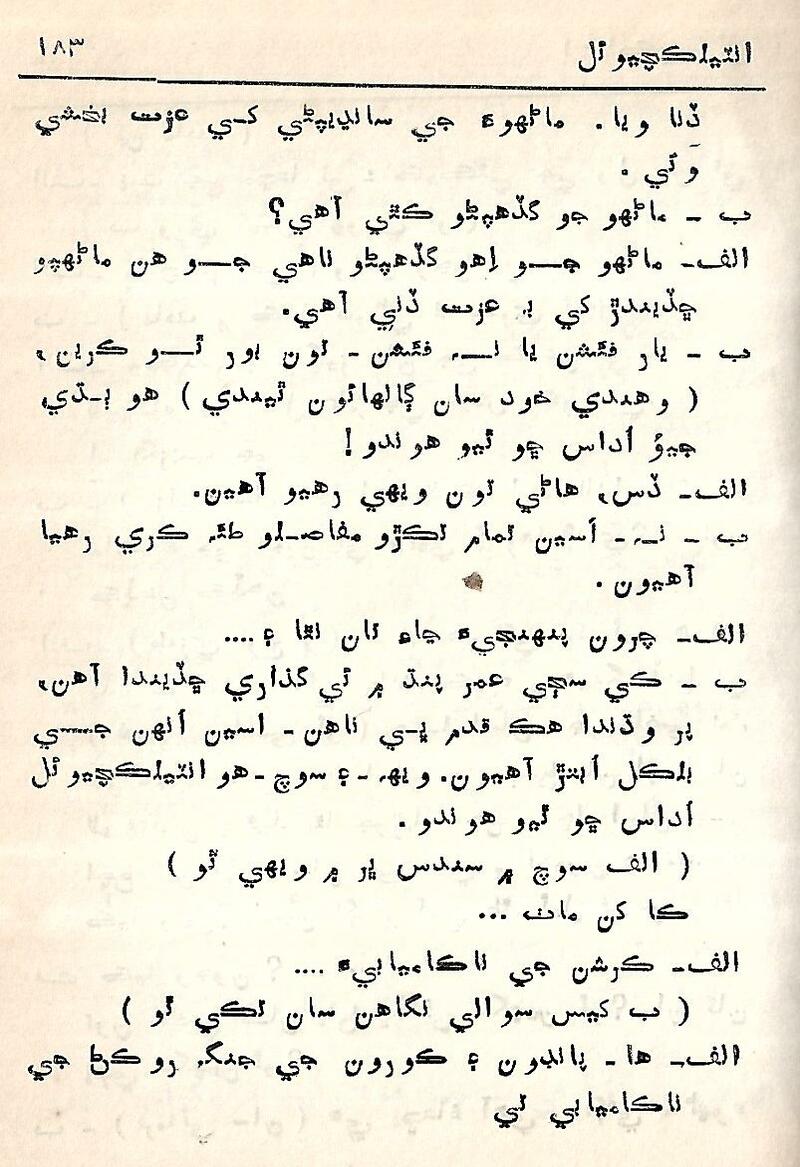 انٽيلڪچيوئل ١٨٣
ڏنا ويا. ماڻهوءَ جي سانڍيپڻي کي عزت بخشي
وَئي.
ب - ماڻهو جو گڏهپڻو ڪٿي آهي؟
الف- ماڻهو جو اِهو گڏهپڻو ناهي جو هن ماڻهپو
ڇڏيندڙ کي به عزت ڏني آهي.
ب - يار فئشن يا نه فئشن- تون بور ٿو ڪرين،
( وهندي خود سان ڳالهائون ٿيندي ) هو ٻڌي،
جيؤ اُداس ڇو ٿيو هوندو!
الف- ڏس، هاڻي تون ويهي رهيو آهين.
ب - نه- اسين تمام تکڙو مفاصلو طئه ڪري رهيا
آهيون.
الف- چرون پنهنجيءَ جاءِ تان نٿا ۽....
ب - ڪي سڄي عمر پنڌ ۾ ئي گذاري ڇڏيندا آهن،
پر وڌندا هڪ قدم ڀي ناهن- اسين اُنهن جي
بلڪل اُبتڙ آهيون. ويهه- ۽ سوچ- هو انٽيلڪچيوئل
اُداس ڇو ٿيو هوندو.
( الف سوچ ۾ سندس ڀر ۾ ويهي ٿو )
ڪا کن ماٺ ...
الف- ڪرشن جي ناڪاميابيءَ ....
( ب کيس سوالي نگاهن سان تڪي ٿو )
الف- ها- پانڊون ۽ ڪورون جي جنگ روڪڻ جي
ناڪاميابي تي